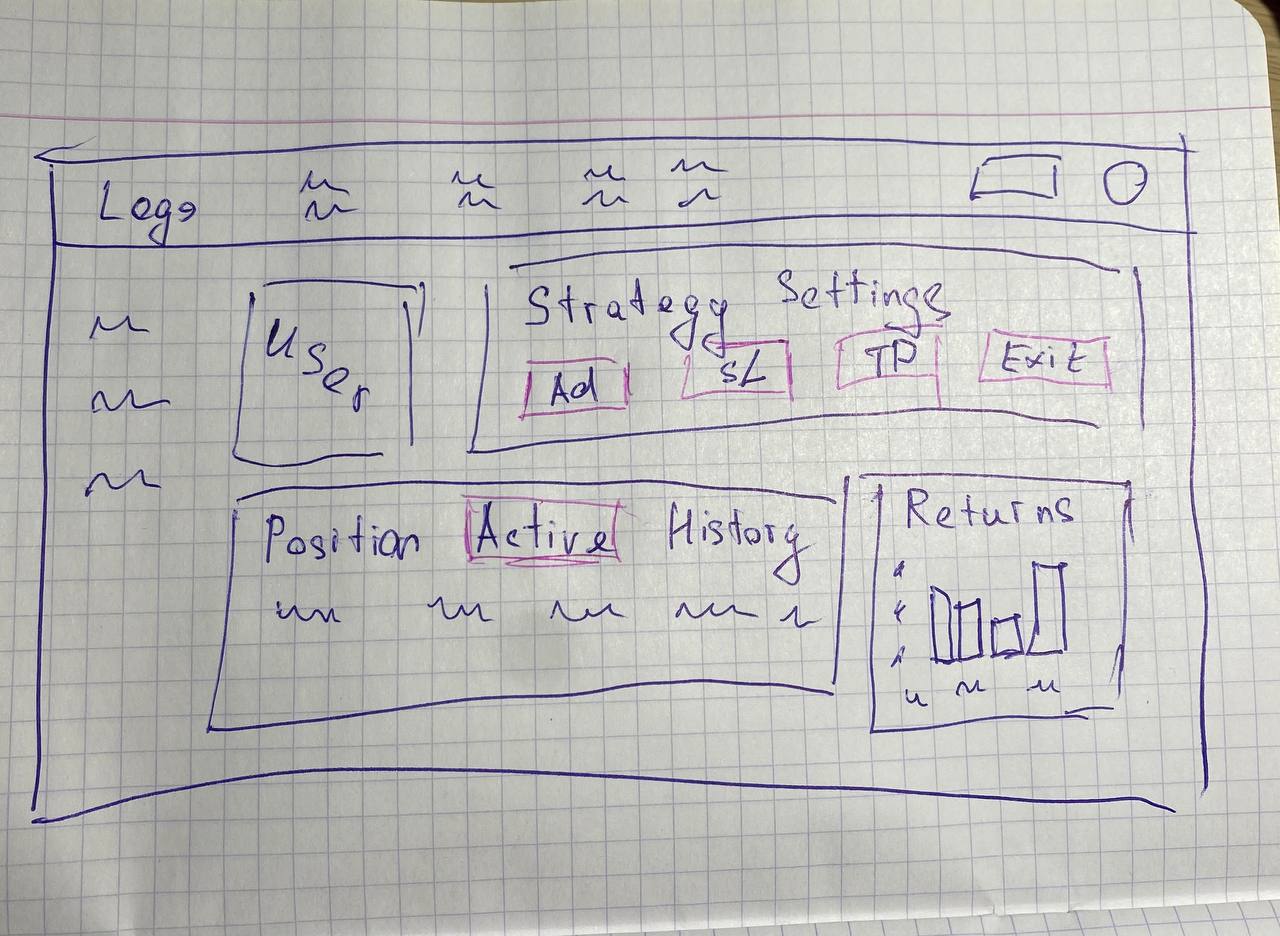 Logo
User
Strategy Settings
Ad SL TP Exit
Position Active History
Returns